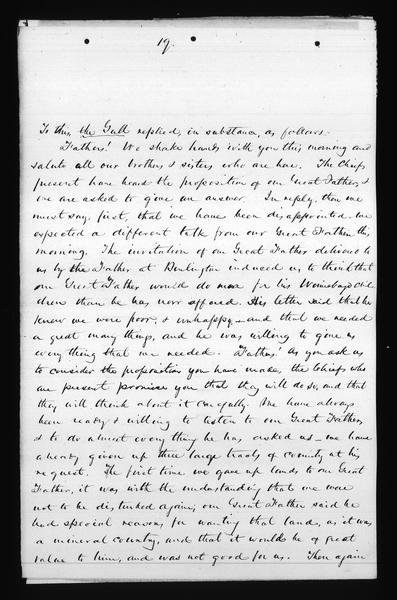 19.
To this, the Gull replied, in substance, as follows:
Fathers! We shake hands with you this morning and
salute all our brothers & sisters who are here. The Chiefs
present have heard the proposition of our Great Father, &
we are asked to give an answer. In reply, then we
must say, first, that we have been disappointed. We
expected a different talk from our Great Father this
morning. The invitation of our Great Father delivered to
us by the Father at Burlington induced us to think that
our Great Father would do more for his Winnebago chil
dren than he has now offered. His letter said that he
knew we were poor, & unhappy, and that we needed
a great many things, and he was willing to give us
every thing that we needed. Fathers! As you ask us
to consider the proposition you have made, the Chiefs who
are present promise you that they will do so, and that
they will think about it carefully. We have always
been ready & willing to listen to our Great Father,
& to do almost every thing he has asked us - we have
already given up three large tracts of country at his
request. The first time we gave up lands to our Great
Father, it was with the understanding that we were
not to be disturbed again; our Great Father said he
had special reasons for wanting that land, as it was
a mineral country, and that it would be of great
value to him, and was not good for us. Then again